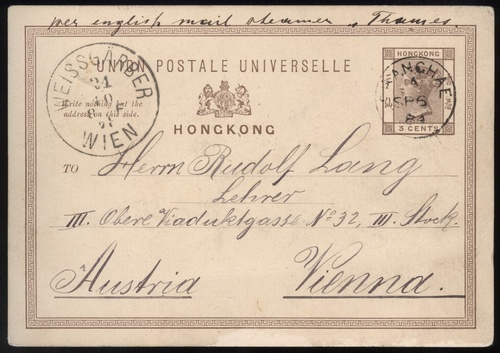 per english mail steamer "Thames
UNION POSTALE UNIVERSELLE
HONGKONG
3 CENTS
SHANGHAE
A
SP 6
WEISSGÄRBER
WIEN
Write nothing but the
address on this side.
HONGKONG
TO Herrn Rudolf Lang
Lehrer
III. Obere Viaduktgasse No 32, III. Stock.
Austria Vienna.